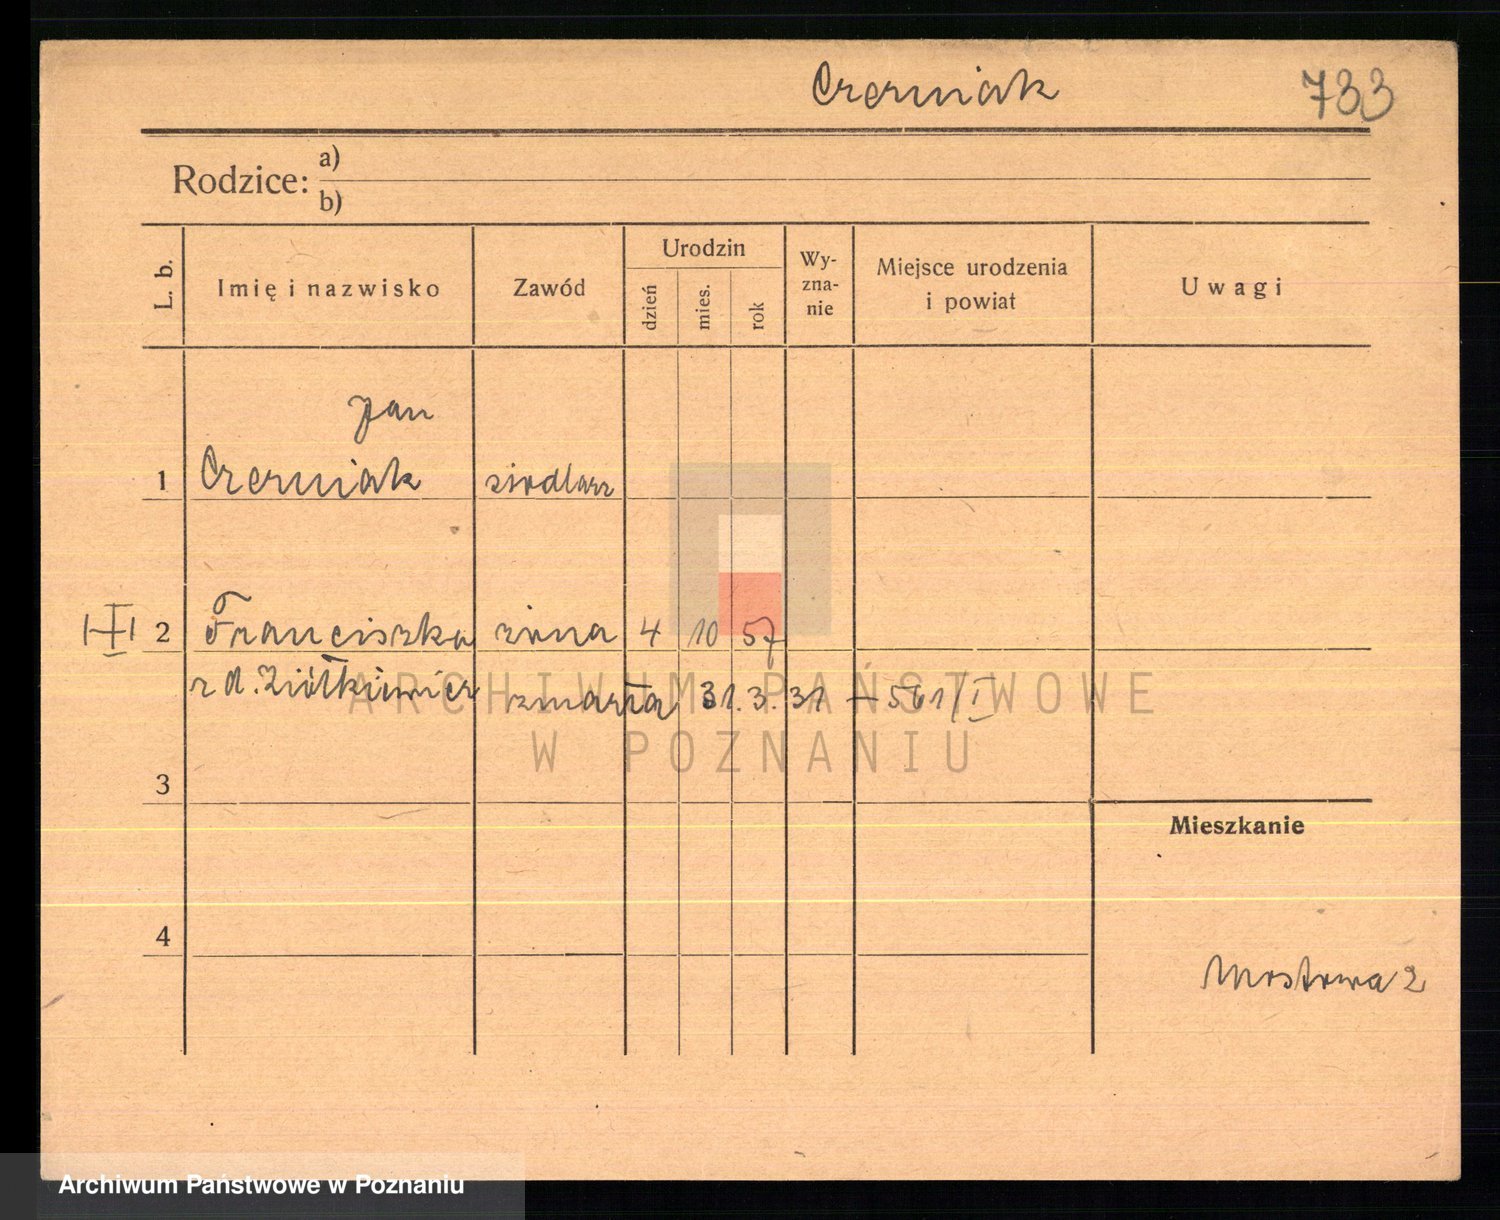 Czerniak 733
Rodzice: a)
b)
L. b. Imię i nazwisko Zawód Urodzin dzień mies. rok Wy-zna-nie Miejsce urodzenia i powiat Uwagi
Jan
1 Czerniak siodlarz
2 Franciszka żona 4 10 57
z d. Ziółkiewicz zmarła 31.3.31 – 561/I
ARCHIWUM PAŃSTWOWE
W POZNANIU
3
Mieszkanie
4
Mostowa 2
Archiwum Państwowe w Poznaniu